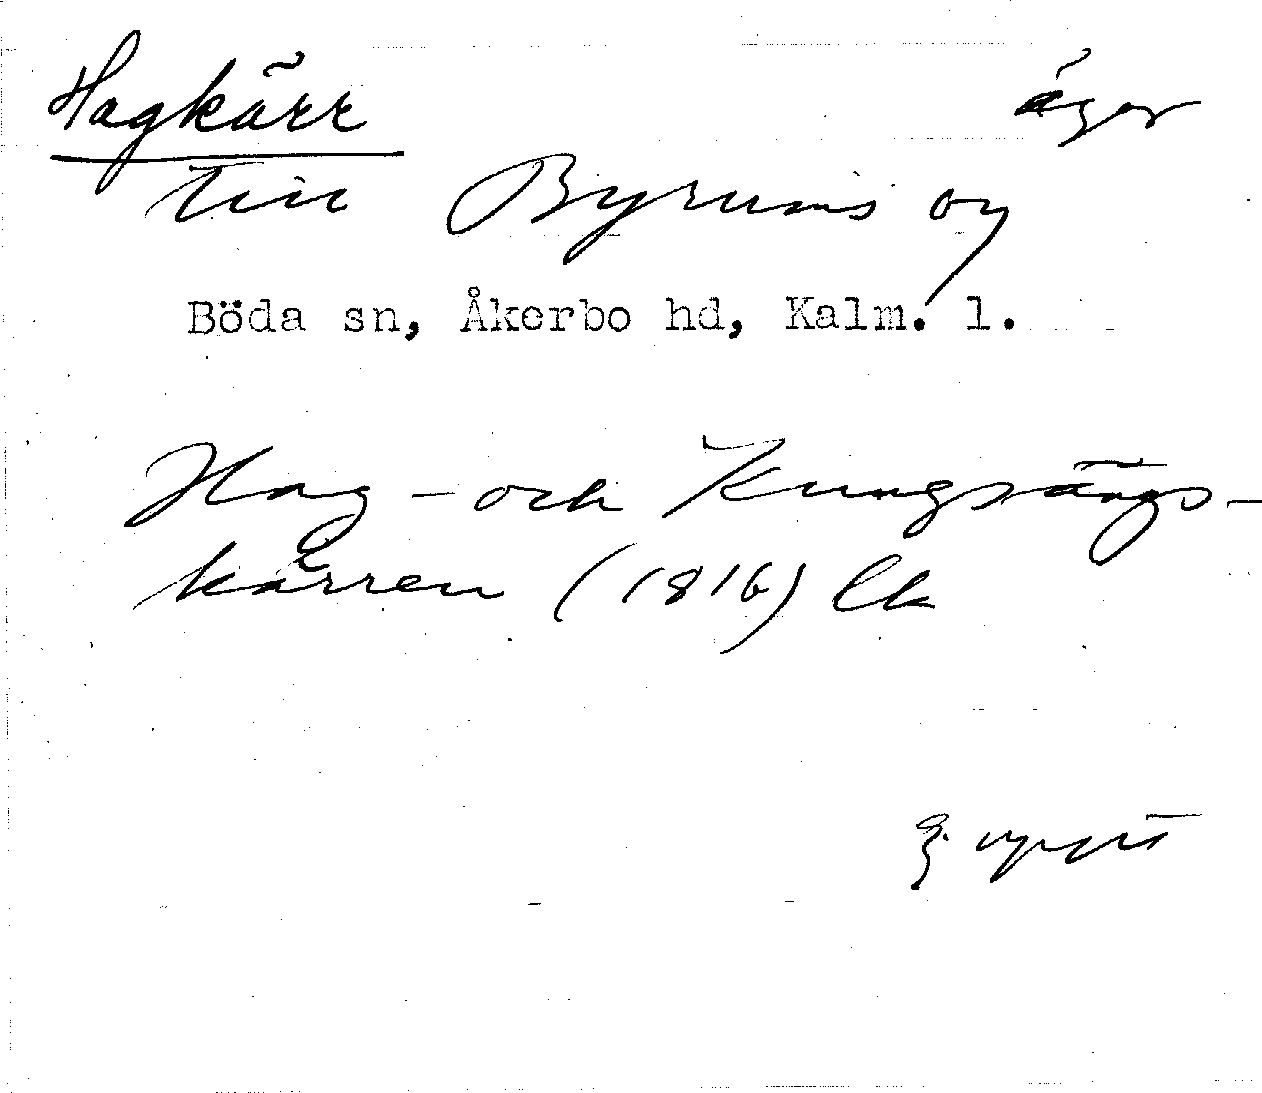 Hagkärr åger
till Byrums by
Böda sn, Åkerbo hd, Kalm. l.
Hag- och Kungsängs-
kärren (1816) lk
Ej uppt